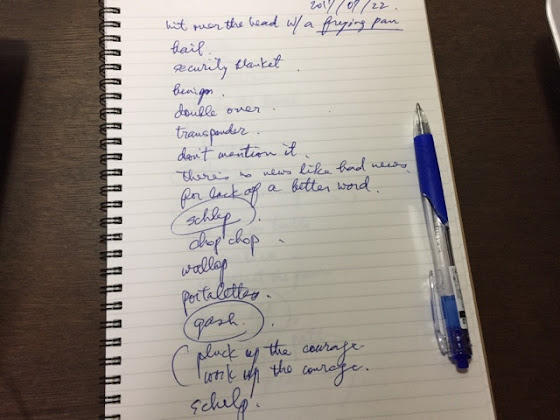 2017/09/22.
hit over the head w/ a frying pan
hail.
security blanket.
benign.
double over.
transponder.
don't mention it.
there's no news like bad news.
for lack of a better word.
schlep.
chop chop.
wallop
portalettes.
gash.
pluck up the courage
work up the courage.
schelp.